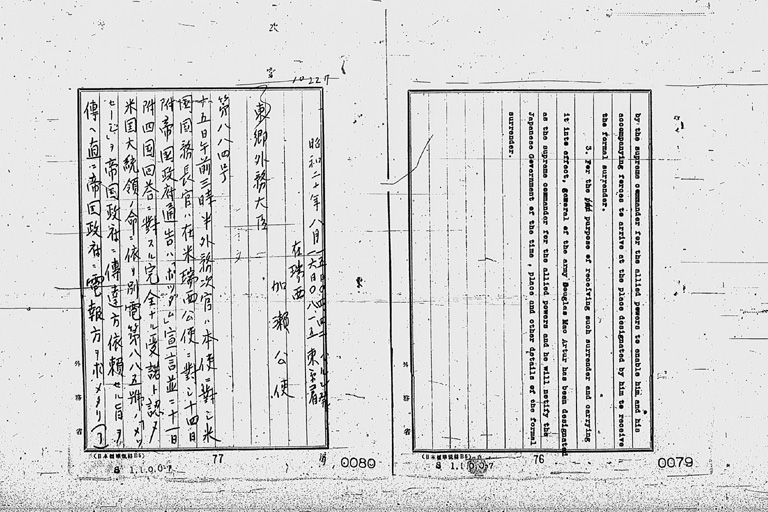 by the supreme commander for the allied powers to enable him and his
accompanying forces to arrive at the place designated by him to receive
the formal surrender.
3. For the purpose of receiving such surrender and carrying
it into effect, general of the army Douglas Mac Artur has been designated
as the supreme commander for the allied powers and he will notify the
Japanese Government of the time, place and other details of the formal
surrender.
外務省
76
0079
10227
昭和二十年八月
東郷外務大臣
在瑞西
加瀬公使
第八八四号
十五日午前三時半外務次官ハ本使ニ対シ米
国国務長官ハ在米瑞西公使ニ対シ十四日
附帝国政府通告ハ「ポツダム」宣言並ニ十一日
附四国回答ニ対スル完全ナル受諾ト認メ
米国大統領ノ命ニ依リ別電第八八五号ノ
ヲ帝国政府ニ伝達方依頼セル旨ヲ
傳ヘ直ニ帝国政府ニ電報方ヲ求メタリ(了)
外務省
77
0080